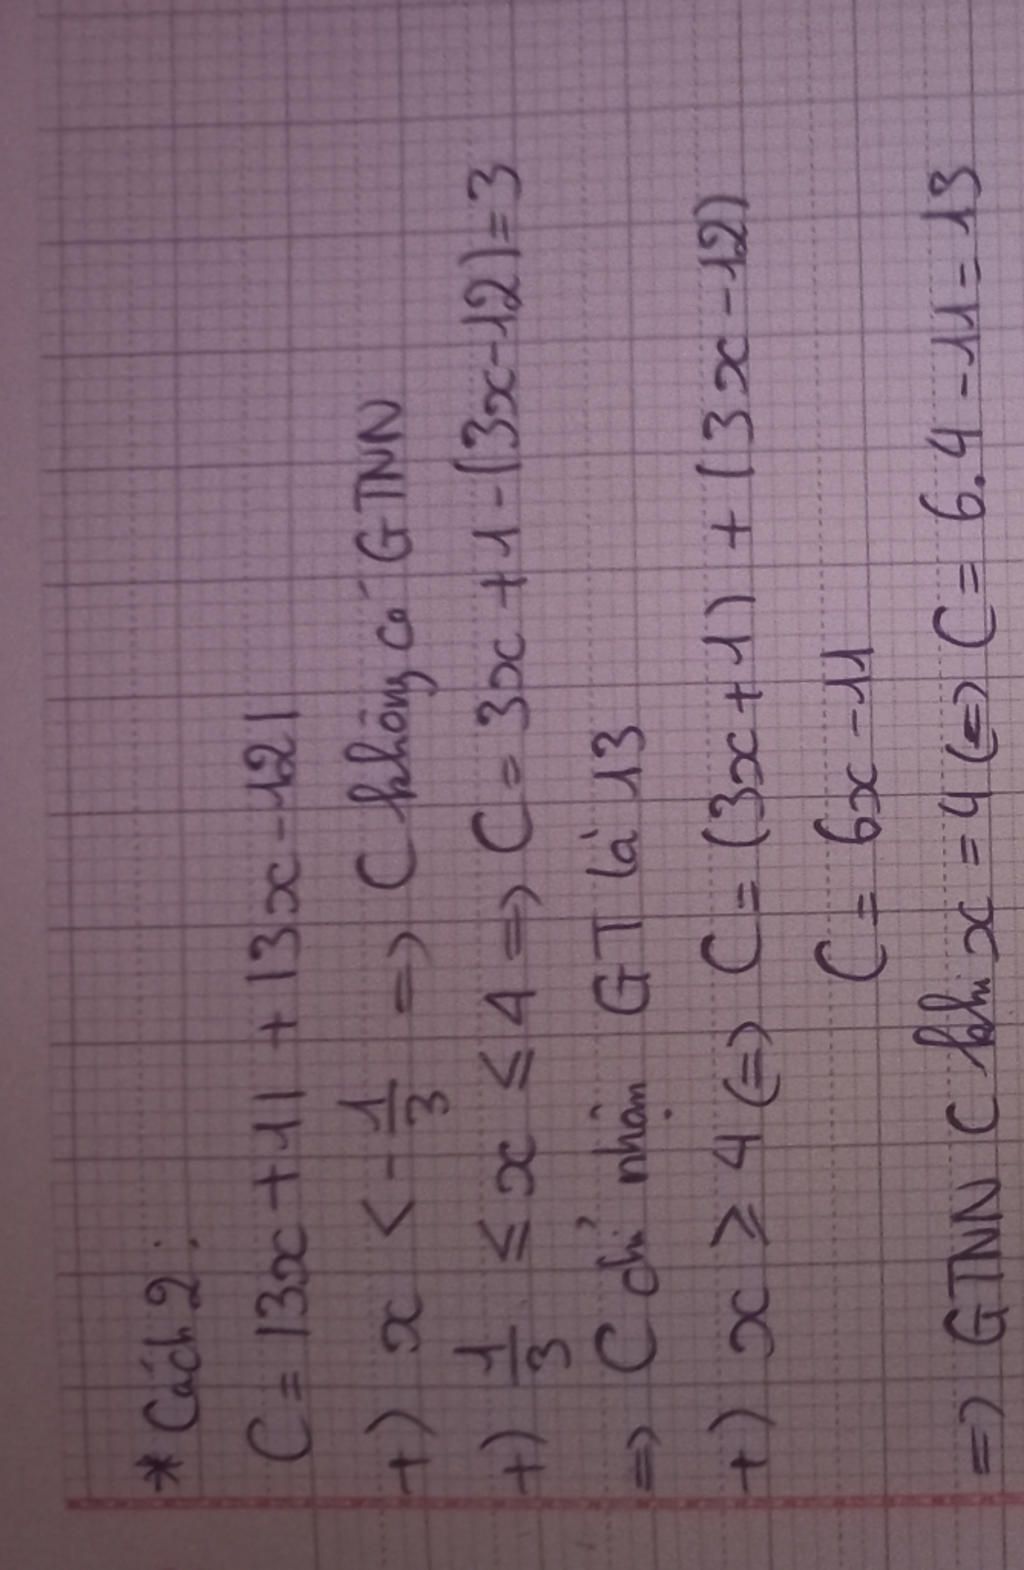 * Cách 2:
C = |3x + 1| + |3x - 12|
+) x < -1/3 => C không có GTNN
+) 1/3 ≤ x ≤ 4 => C = 3x + 1 - (3x - 12) = 3
=> C chỉ nhận GT là 13
+) x ≥ 4 <=> C = (3x + 1) + (3x - 12)
C = 6x - 11
=> GTNN C khi x = 4 <=> C = 6.4 - 11 = 13